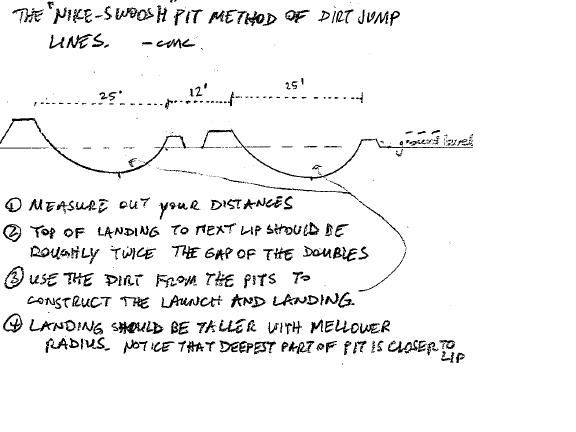 THE "NIKE-SWOOSH" PIT METHOD OF DIRT JUMP
LINES. -CMC
25' 12' 25'
ground level
① MEASURE OUT your DISTANCES
② TOP OF LANDING TO NEXT LIP SHOULD BE
ROUGHLY TWICE THE GAP OF THE DOUBLES
③ USE THE DIRT FROM THE PITS TO
CONSTRUCT THE LAUNCH AND LANDING.
④ LANDING SHOULD BE TALLER WITH MELLOWER
RADIUS. NOTICE THAT DEEPEST PART OF PIT IS CLOSER TO
LIP